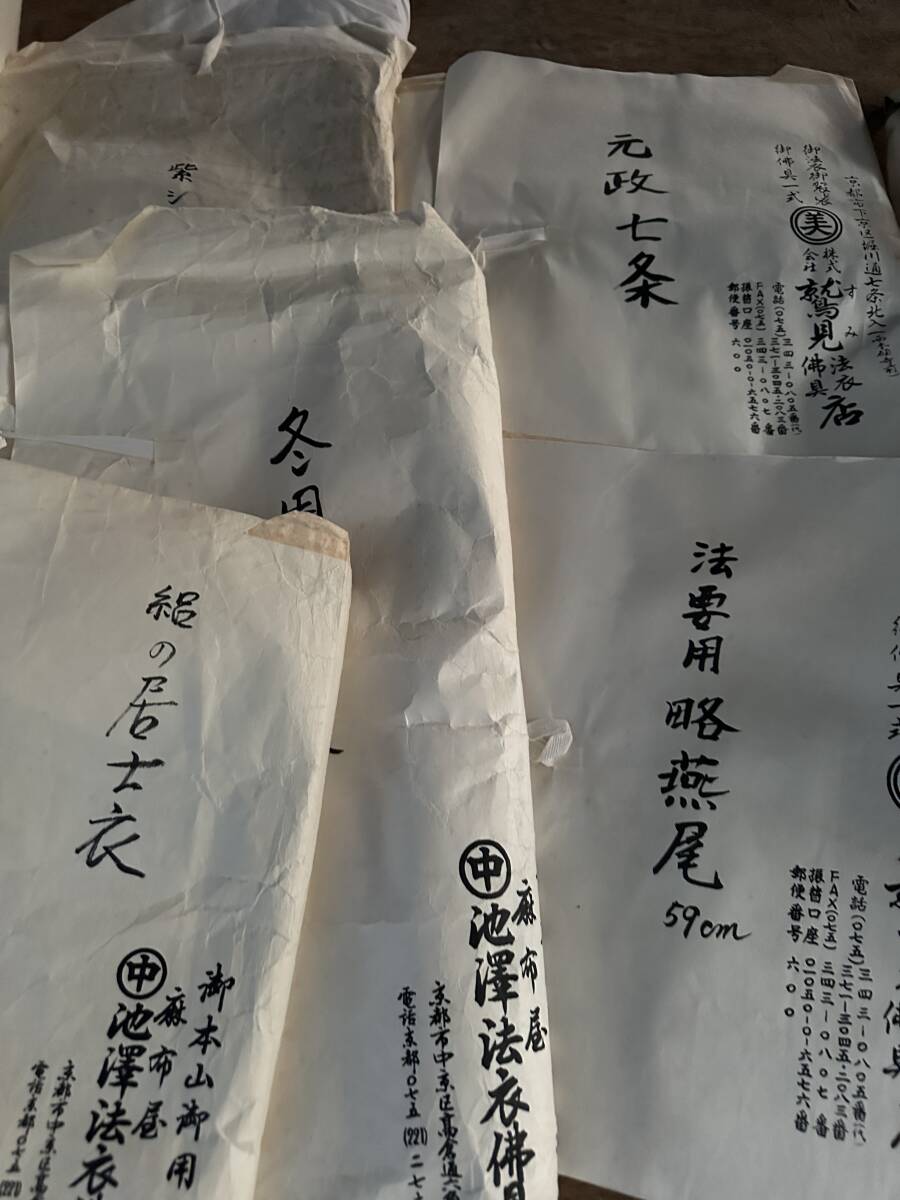 元政七条
京都市下京区堀川通七条北入
御法衣御袈裟
御佛具一式
美
株式会社
鷲見法衣佛具店
すみ
電話(〇七五)三四三―〇八〇五番(代)
三七一―三〇四五・二〇八三番
FAX(〇七五)三四三―〇八〇七番
振替口座 〇一〇五〇―〇―六五七六番
郵便番号 六〇〇
紫シ
冬用
中
麻布屋
池澤法衣佛具
京都市中京区高倉通六
電話京都〇七五(221)二七
法要用略燕尾
59cm
電話(〇七五)三四三―〇八〇五番(代)
三七一―三〇四五・二〇八三番
FAX(〇七五)三四三―〇八〇七番
振替口座 〇一〇五〇―〇―六五七六番
郵便番号 六〇〇
絽の居士衣
御本山御用
中
麻布屋
池澤法衣
京都市中京区高
電話京都〇七五